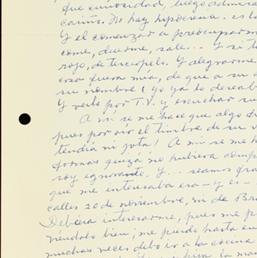 que curiosidad, luego admira
cariño. No hay hipocresía. es lo
Y el comenzar a preocuparm
come, duerme, sale... Y si t
rojo, de terciopelo. Y alegrarme
cosa fuera mía, de que a su
su nombre! (yo ya lo deseab
Y verlo por T.V. y escuchar su
A mí se me hace algo
pues por oír el timbre de su v
tendía ni jota! A mí se me h
formas quizá no hubiera comp
soy ignorante. Y... seamos gra
que me interesaba era - y es -
calles 20 de noviembre, ni de Br
Debiera interesarme, pues me p
viendolo bien; me puedo hasta en
muchas veces debo ir a la cocina
la